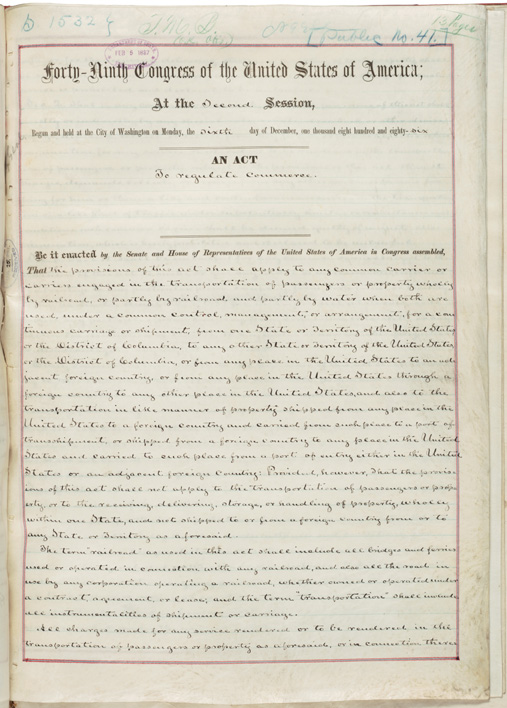 [Public No. 41.]
FEB 9 1887
Forty-Ninth Congress of the United States of America;
At the Second Session,
Begun and held at the City of Washington on Monday, the sixth day of December, one thousand eight hundred and eighty-six
AN ACT
To regulate commerce.
Be it enacted by the Senate and House of Representatives of the United States of America in Congress assembled,
That the provisions of this act shall apply to any common carrier or
carriers engaged in the transportation of passengers or property wholly
by railroad, or partly by railroad and partly by water when both are
used, under a common control, management, or arrangement, for a con
tinuous carriage or shipment, from one State or Territory of the United States,
or the District of Columbia, to any other State or Territory of the United States,
or the District of Columbia, or from any place in the United States to an ad
jacent foreign country, or from any place in the United States through a
foreign country to any other place in the United States, and also to the
transportation in like manner of property shipped from any place in the
United States to a foreign country and carried from such place to a port of
transshipment, or shipped from a foreign country to any place in the United
States and carried to such place from a port of entry either in the United
States or an adjacent foreign country: Provided, however, That the provis
ions of this act shall not apply to the transportation of passengers or prop
erty, or to the receiving, delivering, storage, or handling of property, wholly
within one State, and not shipped to or from a foreign country from or to
any State or Territory as aforesaid.
The term "railroad" as used in this act shall include all bridges and ferries
used or operated in connection with any railroad, and also all the road in
use by any corporation operating a railroad, whether owned or operated under
a contract, agreement, or lease; and the term "transportation" shall include
all instrumentalities of shipment or carriage.
All charges made for any service rendered or to be rendered in the
transportation of passengers or property as aforesaid, or in connection there